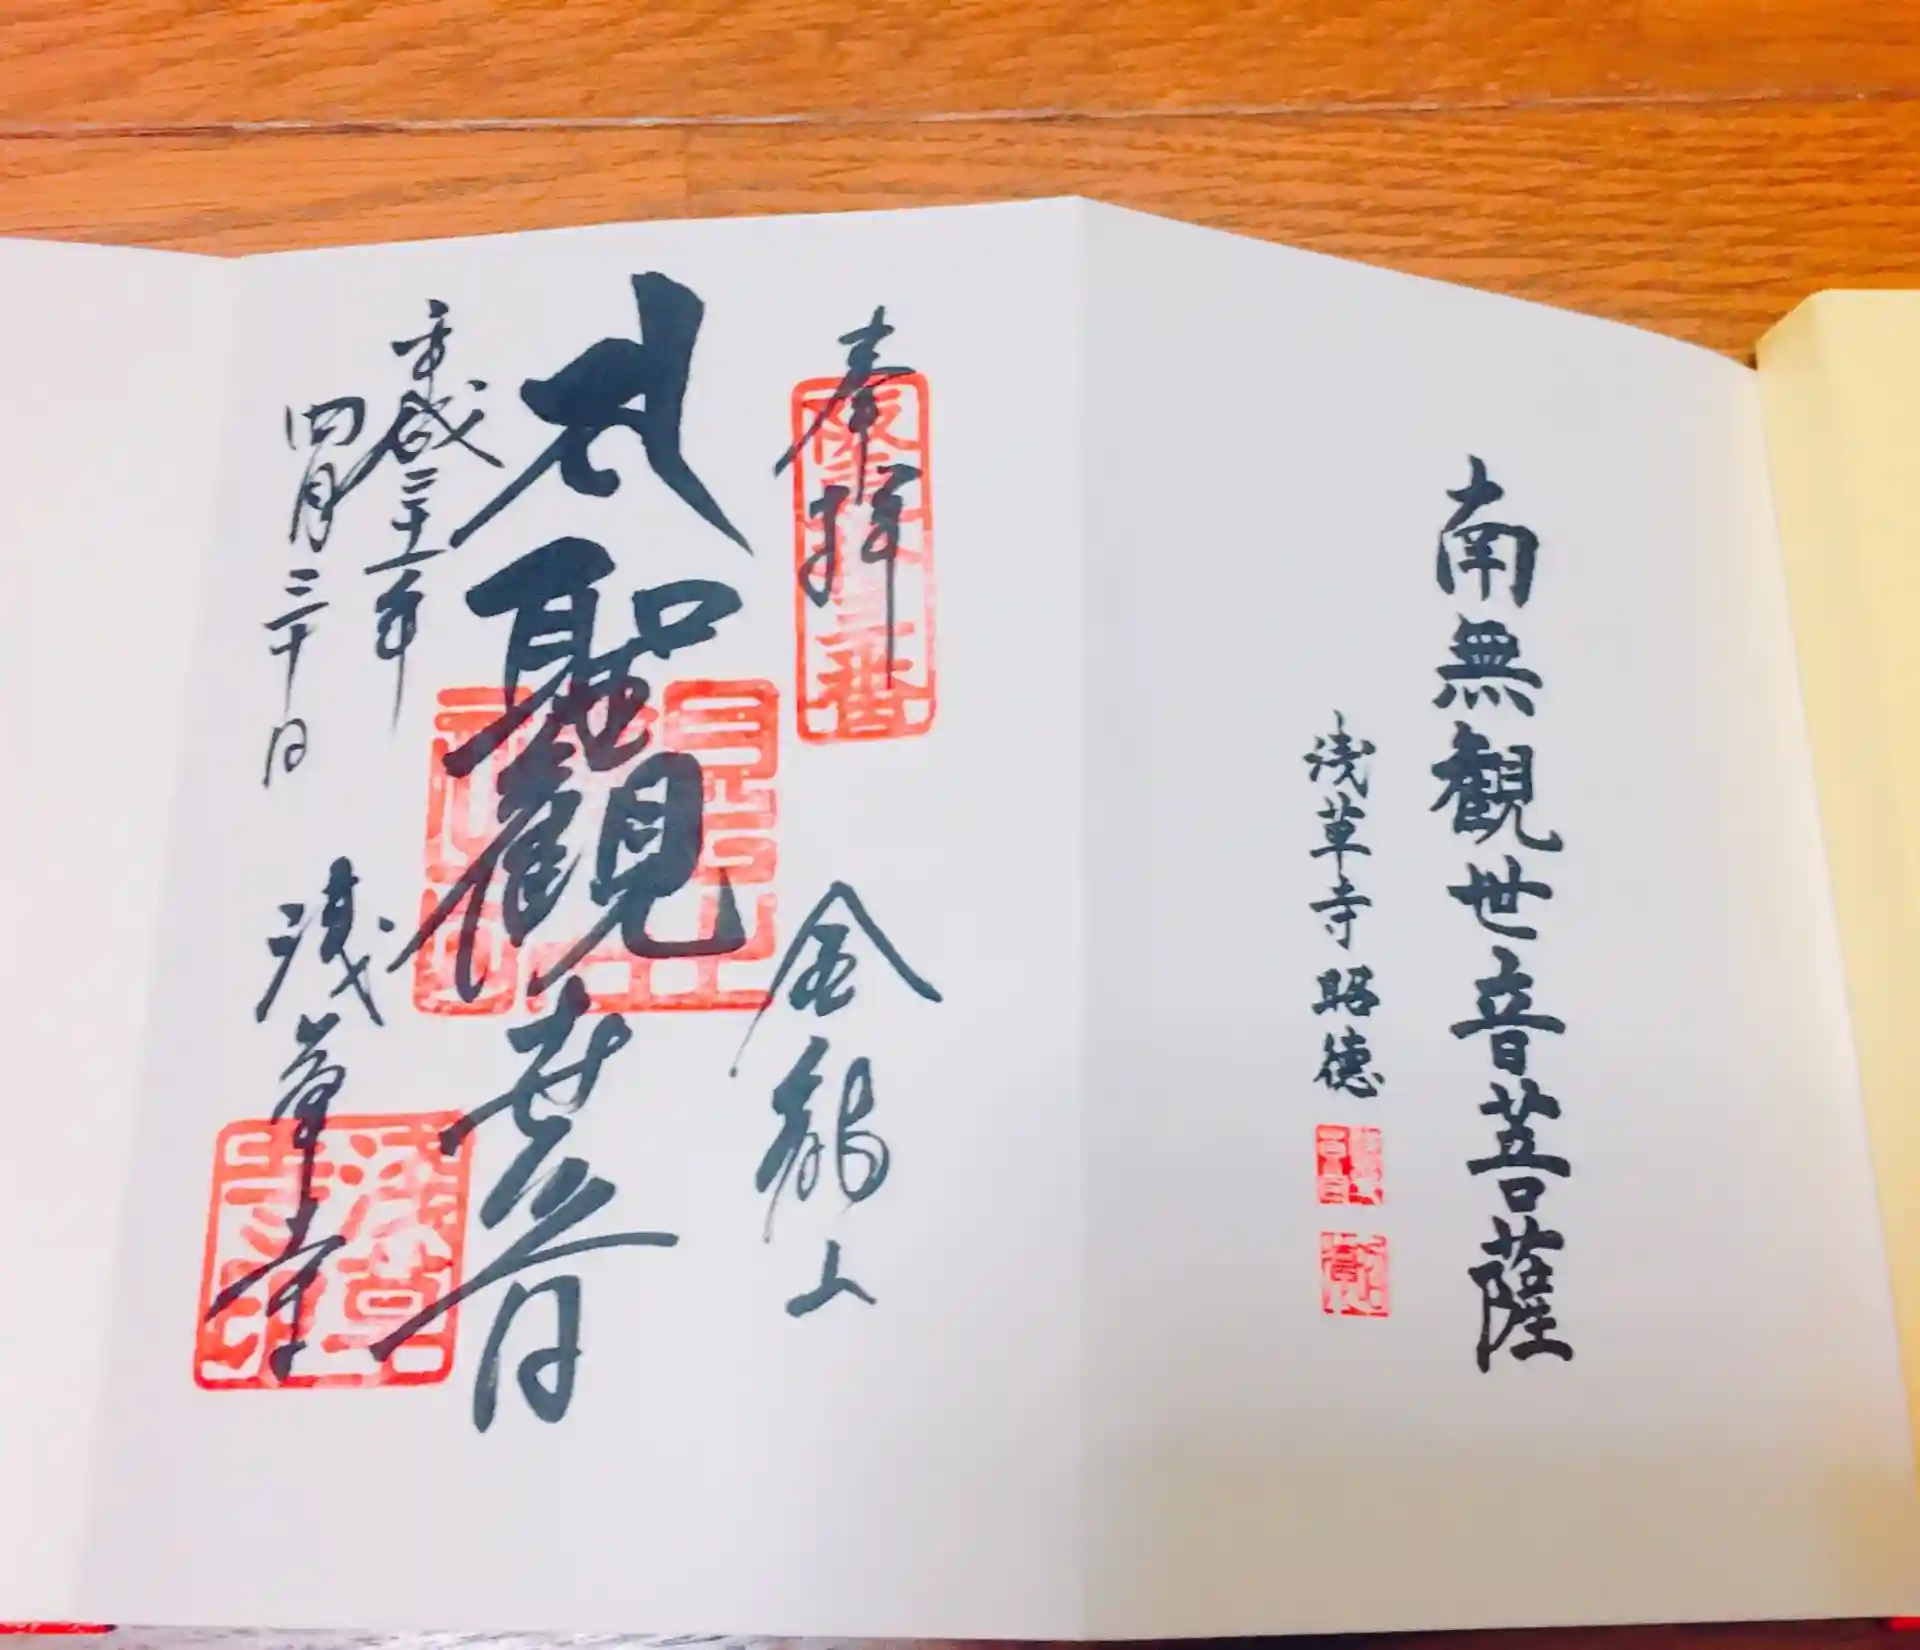 南無観世音菩薩
浅草寺昭徳
奉拝
金龍山
聖観世音
平成三十一年
四月三十日
浅草寺